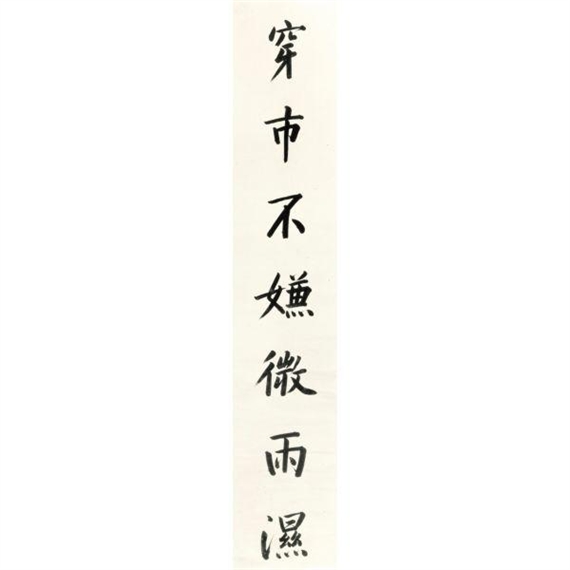 穿市不嫌微雨濕